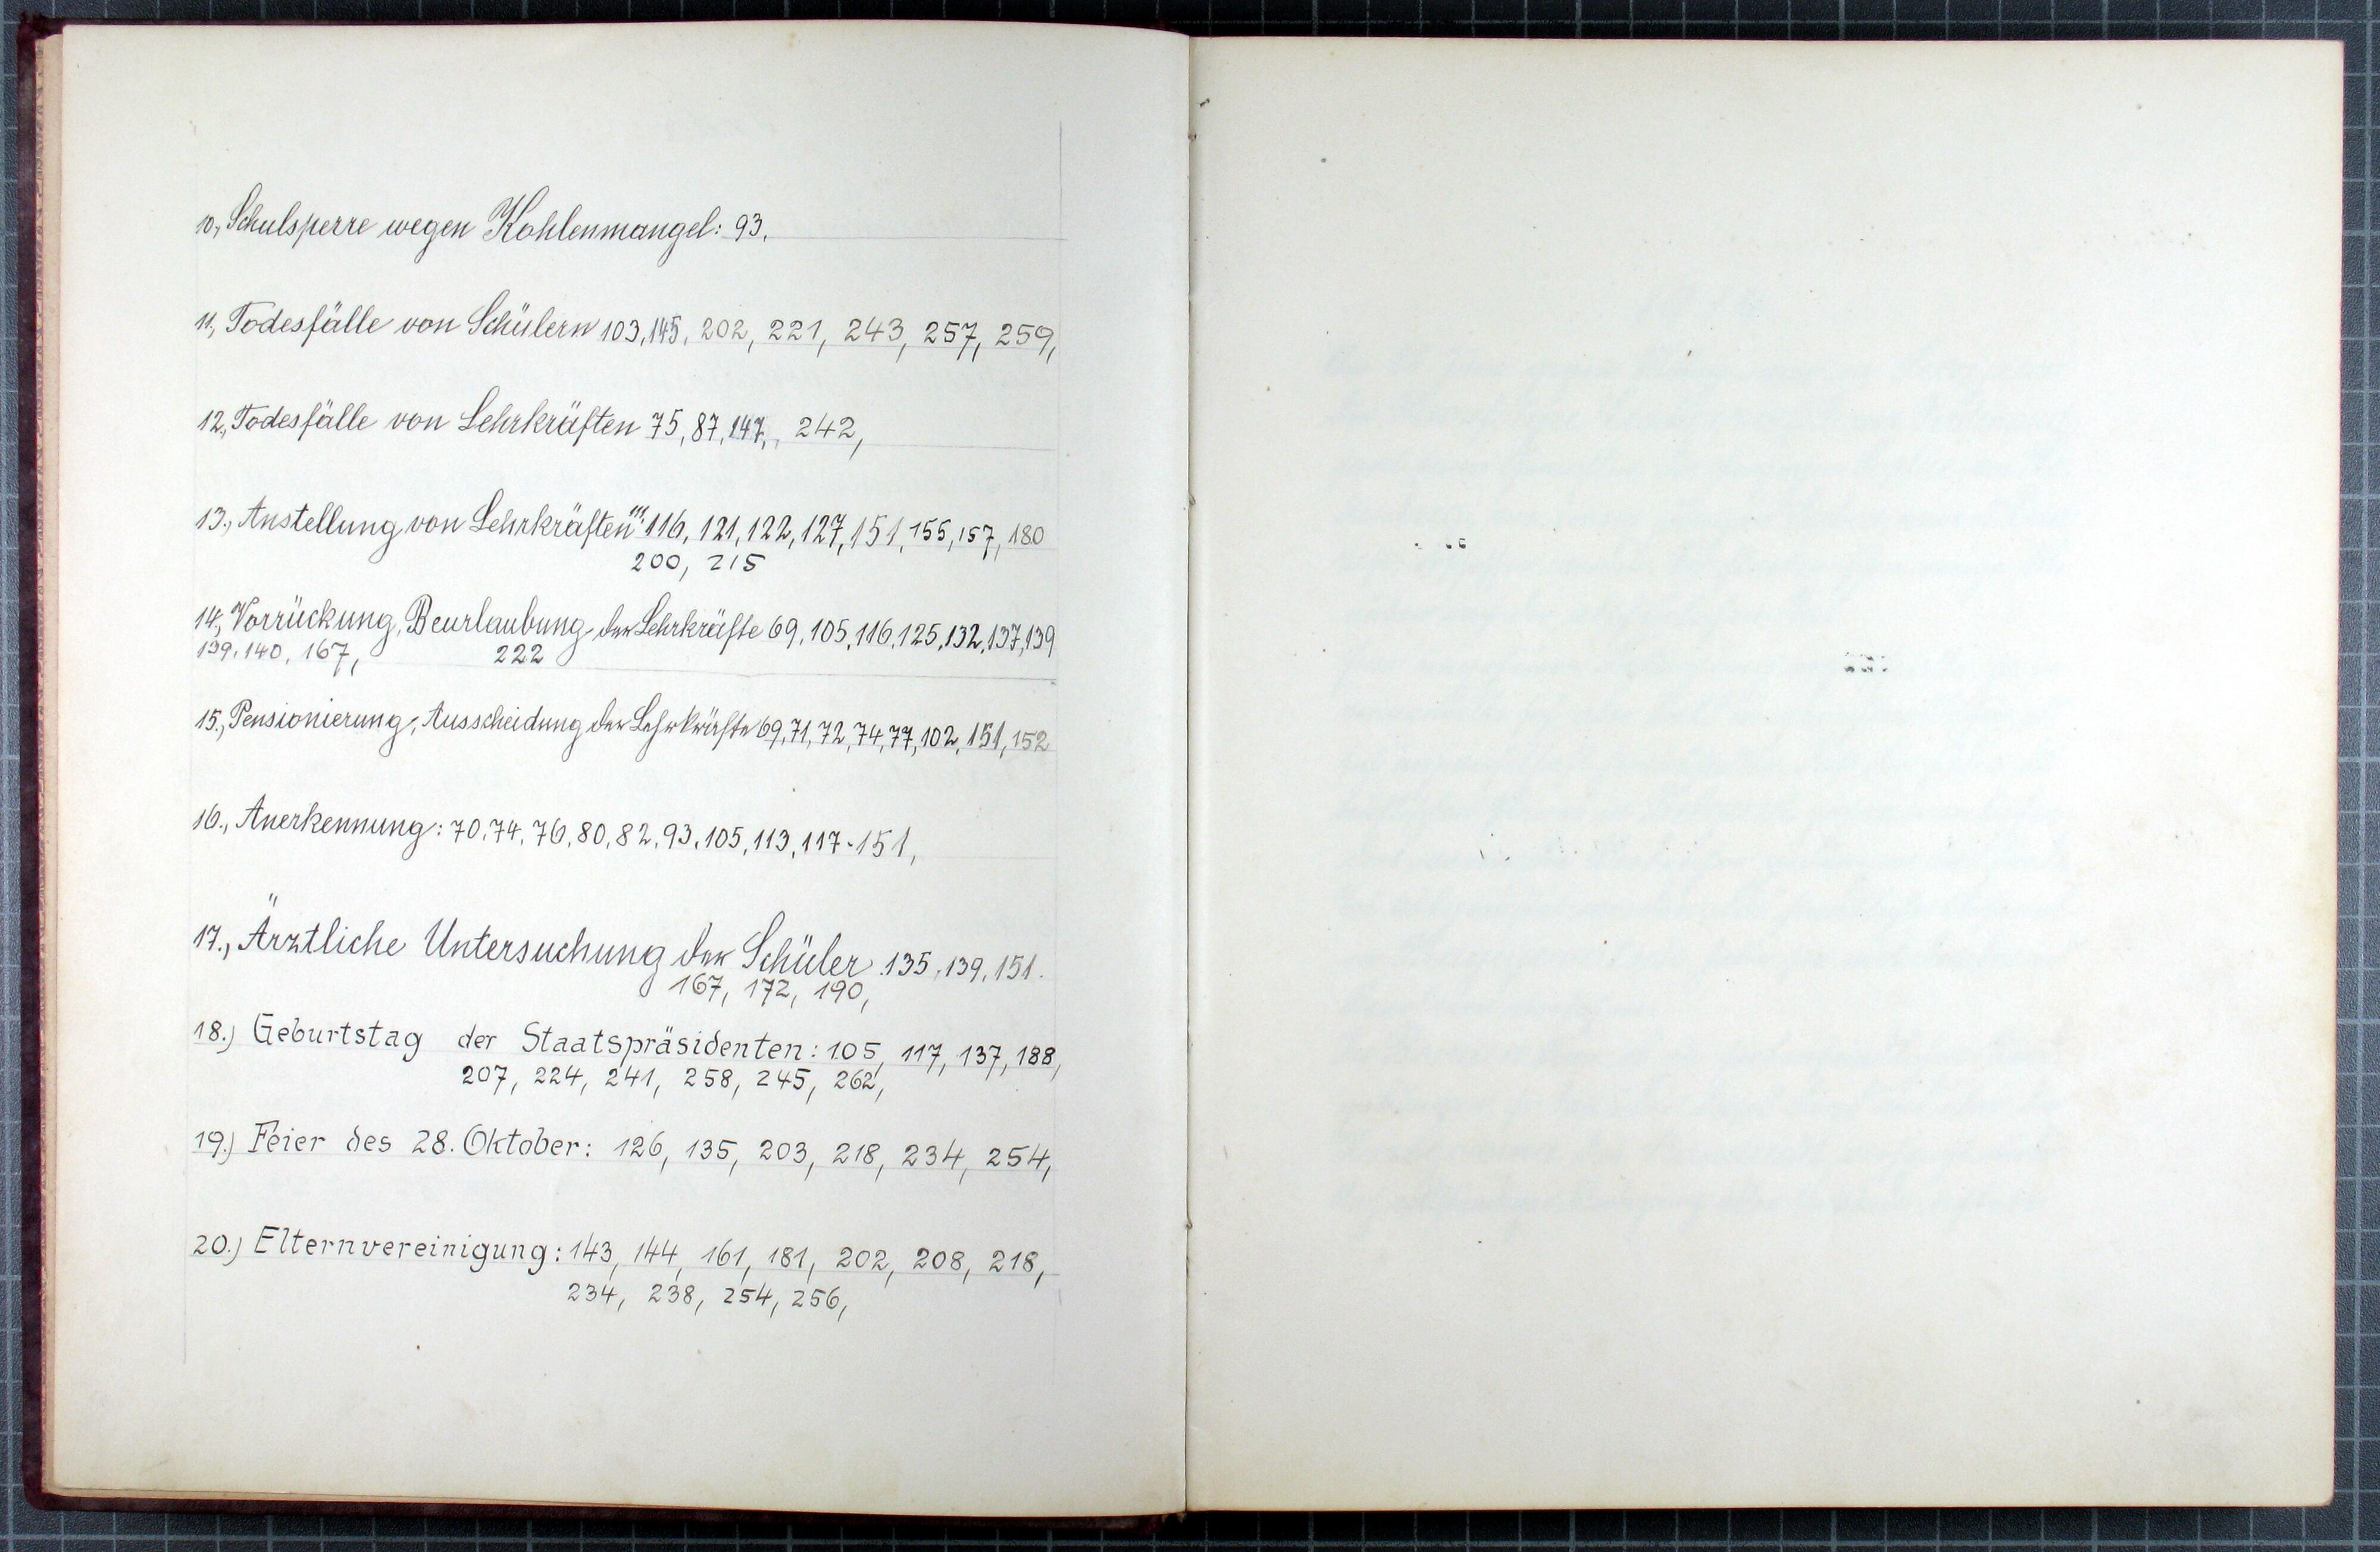 10., Schulsperre wegen Kohlenmangel: 93.
11., Todesfälle von Schülern 103, 145, 202, 221, 243, 257, 259,
12., Todesfälle von Lehrkräften 75, 87, 147, 242,
13., Anstellung von Lehrkräften 111, 116, 121, 122, 127, 151, 155, 157, 180
200, 215
14., Vorrückung, Beurlaubung der Lehrkräfte 69, 105, 116, 125, 132, 137, 139
139, 140, 167, 222
15., Pensionierung, Ausscheidung der Lehrkräfte 69, 71, 72, 74, 77, 102, 151, 152
16., Anerkennung: 70, 74, 76, 80, 82, 93, 105, 113, 117, 151,
17., Ärztliche Untersuchung der Schüler 135, 139, 151.
167, 172, 190,
18.) Geburtstag der Staatspräsidenten: 105, 117, 137, 188,
207, 224, 241, 258, 245, 262,
19.) Feier des 28. Oktober: 126, 135, 203, 218, 234, 254,
20.) Elternvereinigung: 143, 144, 161, 181, 202, 208, 218,
234, 238, 254, 256,